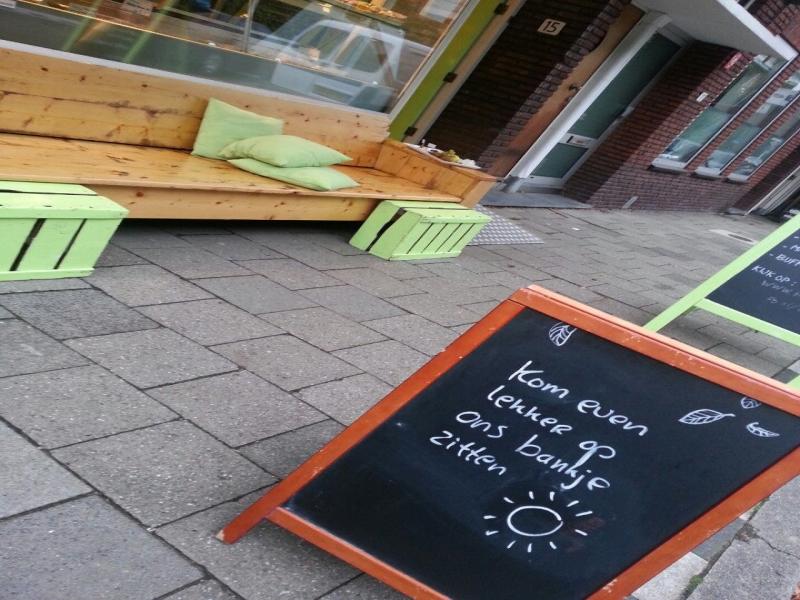 15
Kom even
lekker op
ons bankje
zitten
KIJK OP: